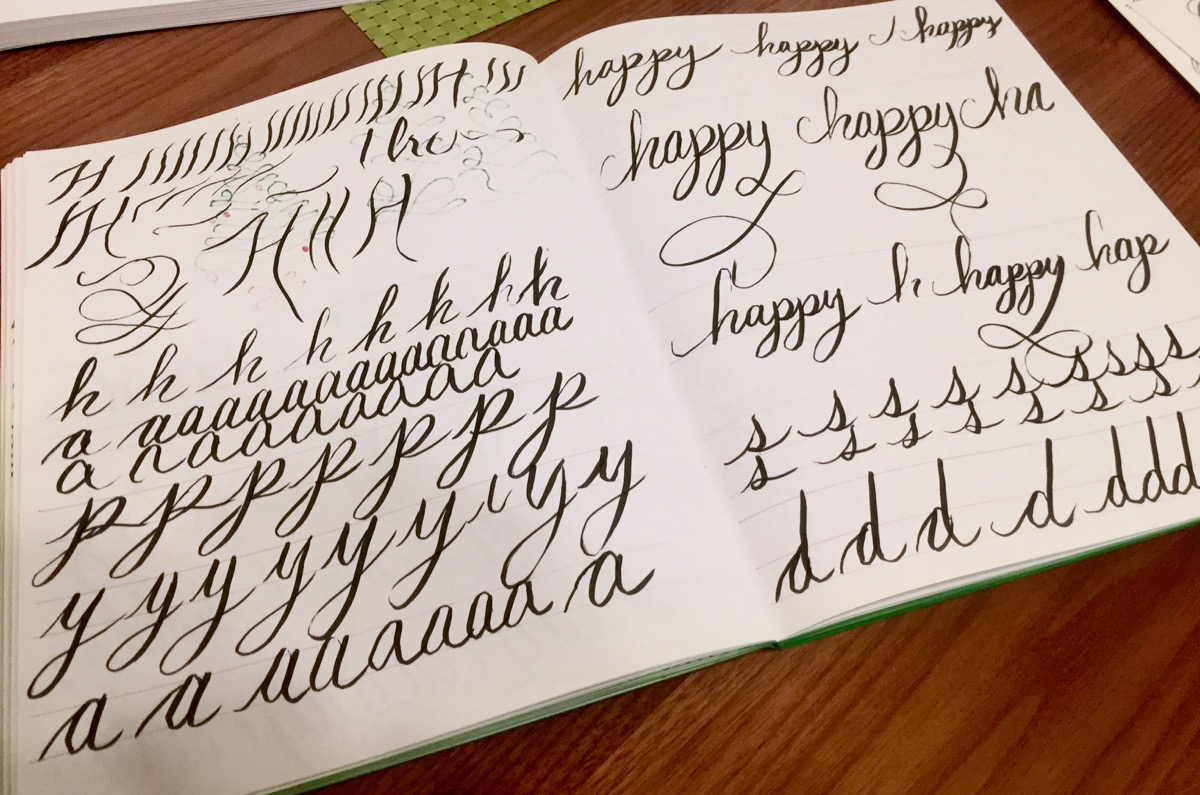 H H
H H H
h h h h h h h
a a a a a a a a a a a a a a
a a a a a a a a
p p p p p p p
y y y y y y y y
a a a a a a a a a
happy happy happy
happy happy ha
happy h happy hap
s s s s s s s s
s s s s s s s
d d d d d d d